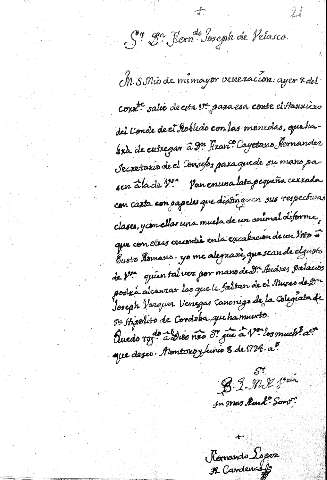 +
21
Sr. Dn. Ferndo. Joseph de Velasco.
M. S. Mio de mi mayor veneracion: ayer 7 del
corrte. salio de esta para esa corte el Harriero
del Conde de el Robledo con las monedas, que ha-
brá de entregar á Dn. Franco. Cayetano Fernandez
Secretario de el Consejo para que de su mano pa-
sen á la de V.S. Van en una lata pequeña cerrada
con carta con papeles que distinguen sus respectivas
clases, y con ellas una muela de un animal disforme,
que con otras encontró en la excabacion de un
Busto Romano. yo me alegraré, que sean de el gusto
de V.S. quien tal vez por mano de Dn. Andres Palacios
podrá alcanzar las que le faltan de el Museo de Dn.
Joseph Vazquez Venegas Canonigo de la Colegiata de
Sn. Hipolito de Cordoba, que ha muerto.
Quedo rogdo. á Dios nro. Sr. gue. á V.S. los muchos as.
que deseo. Montoro y Junio 8 de 1774. as.
B. L. M. de V.S.
su mas Rendo. Servr.
+
Fernando Lopez
de Cardenas